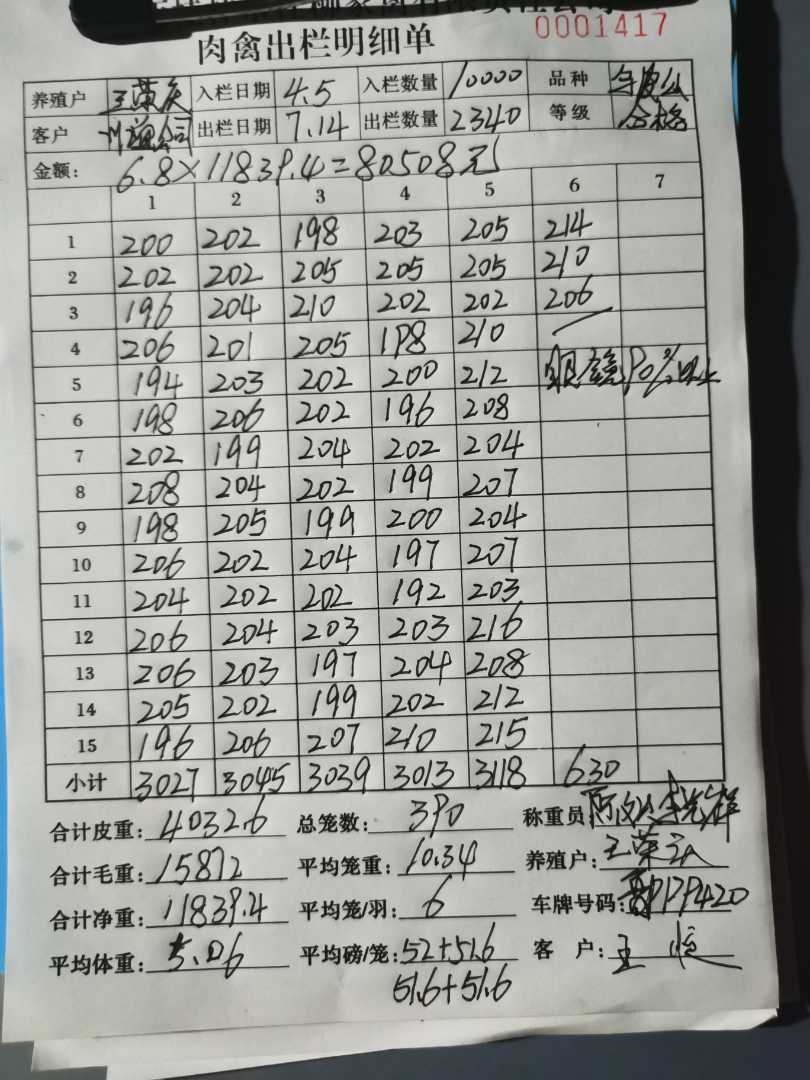 0001417
肉禽出栏明细单
养殖户 王荣庆 入栏日期 4.5 入栏数量 10000 品种
客户 公司 出栏日期 7.14 出栏数量 2340 等级 合格
金额: 6.8×11839.4=80508元
1 2 3 4 5 6 7
1 200 202 198 203 205 214
2 202 202 205 205 205 210
3 196 204 210 202 202 206
4 206 201 205 198 210
5 194 203 202 200 212 90%以上
6 198 206 202 196 208
7 202 199 204 202 204
8 208 204 202 199 207
9 198 205 199 200 204
10 206 202 204 197 207
11 204 202 202 192 203
12 206 204 203 203 216
13 206 203 197 204 208
14 205 202 199 202 212
15 196 206 207 210 215
小计 3027 3045 3039 3013 3118 630
合计皮重: 4032.6 总笼数: 390 称重员
合计毛重: 15872 平均笼重: 10.34 养殖户: 王荣庆
合计净重: 11839.4 平均笼/羽: 6 车牌号码:
平均体重: 5.06 平均磅/笼: 52+51.6 客 户: 王
51.6+51.6